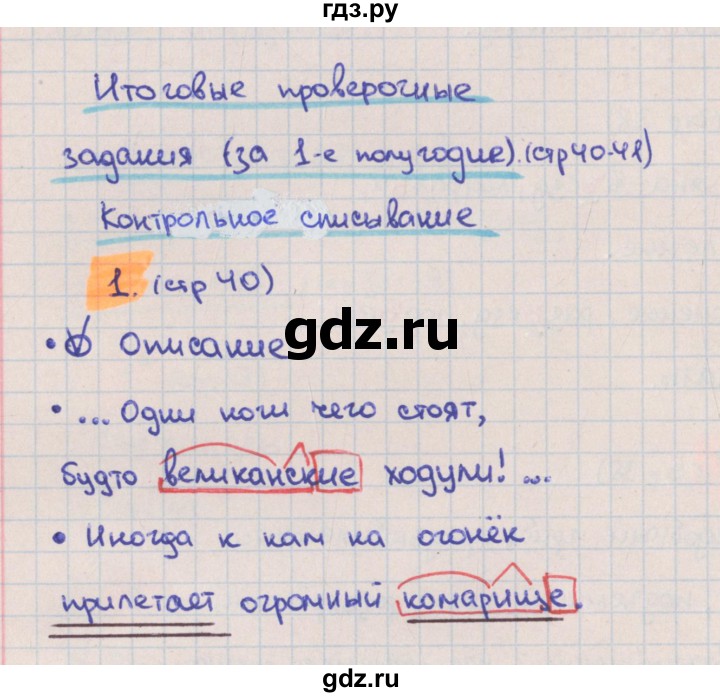 гдз.ру
Итоговые проверочные
задания (за 1-е полугодие). (стр 40-41)
Контрольное списывание
1. (стр 40)
• Описание
gdz.ru
• ... Одни ноги чего стоят,
будто великанские ходули! ...
• Иногда к нам на огонёк
прилетает огромный комарище.
gdz.ru